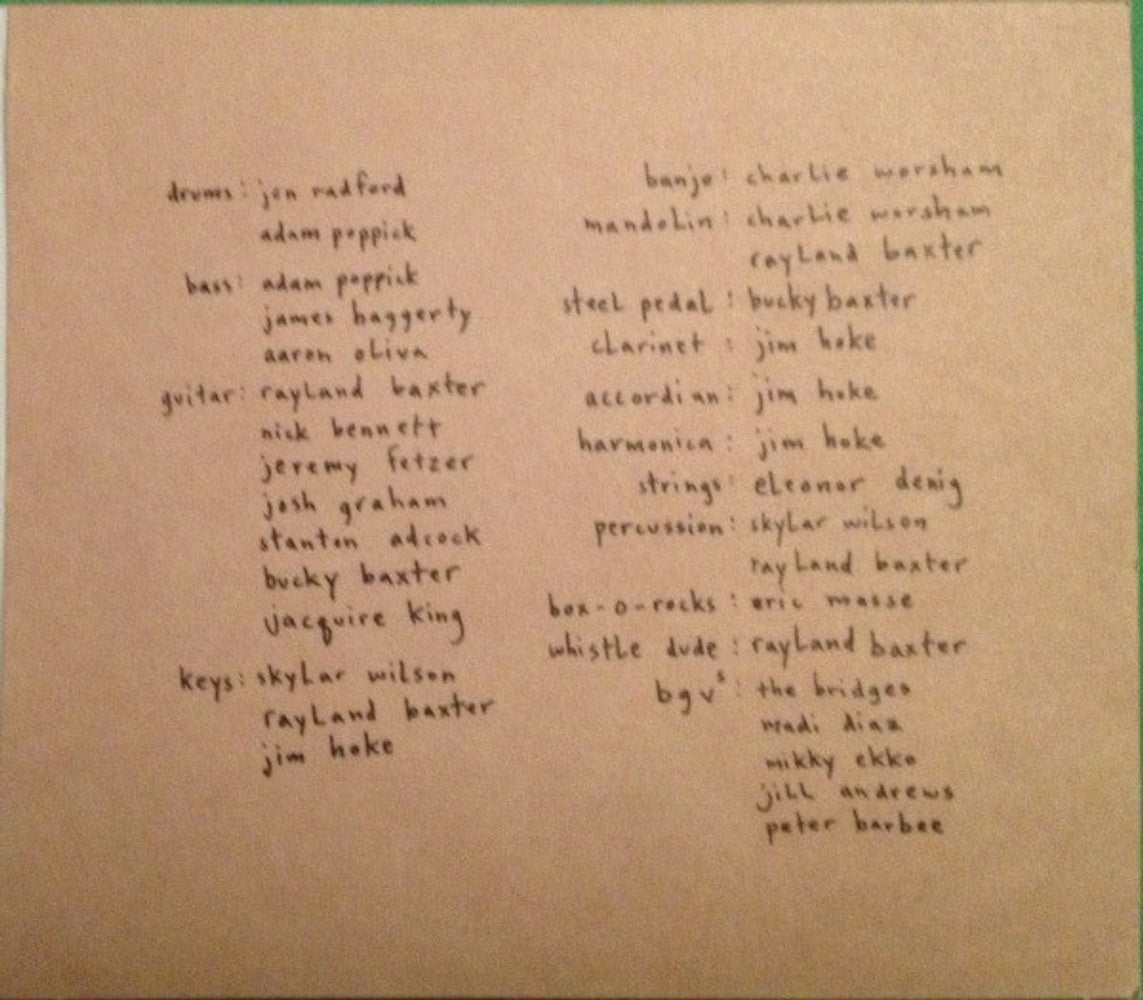 drums: jon radford
adam poppick
bass: adam poppick
james haggerty
aaron oliva
guitar: rayland baxter
nick bennett
jeremy fetzer
josh graham
stanton adcock
bucky baxter
jacquire king
keys: skylar wilson
rayland baxter
jim hoke
banjo: charlie worsham
mandolin: charlie worsham
rayland baxter
steel pedal: bucky baxter
clarinet: jim hoke
accordian: jim hoke
harmonica: jim hoke
strings: eleonor denig
percussion: skylar wilson
rayland baxter
box-o-rocks: eric masse
whistle dude: rayland baxter
bgvs: the bridges
madi diaz
mikky ekko
jill andrews
peter barbee